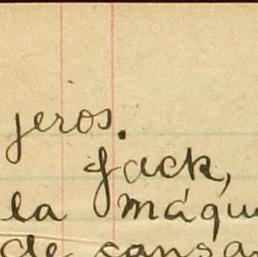 jeros.
Jack,
la máqu
de cansa